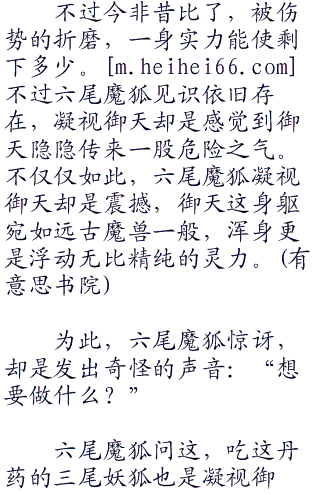 不过今非昔比了，被伤
势的折磨，一身实力能使剩
下多少。[m.heihei66.com]
不过六尾魔狐见识依旧存
在，凝视御天却是感觉到御
天隐隐传来一股危险之气。
不仅仅如此，六尾魔狐凝视
御天却是震撼，御天这身躯
宛如远古魔兽一般，浑身更
是浮动无比精纯的灵力。(有
意思书院)
为此，六尾魔狐惊讶，
却是发出奇怪的声音：“想
要做什么？”
六尾魔狐问这，吃这丹
药的三尾妖狐也是凝视御